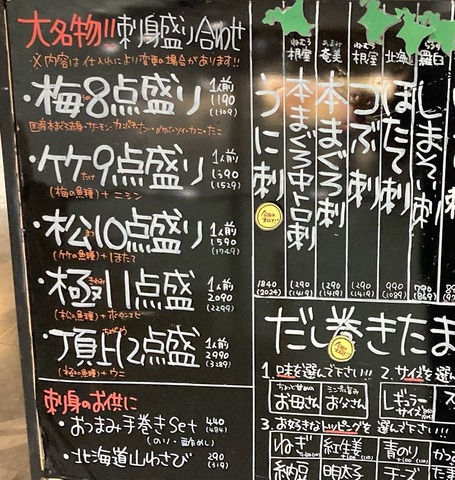 大名物!! 刺身盛り合わせ
※内容は仕入れにより変更の場合があります!!
・梅8点盛り 1人前 1190 (1309)
・竹9点盛り 1人前 1390 (1529)
(梅の魚種)+ニシン
・松10点盛り 1人前 1590 (1749)
(竹の魚種)+ほたて
・極11点盛 1人前 2090 (2299)
(松の魚種)+ボタンエビ
・頂上12点盛 1人前 2990 (3289)
(極の魚種)+ウニ
刺身のお供に
・おつまみ手巻きSet 440 (484)
(のり・酢めし)
・北海道山わさび 290 (319)
うに刺 1840 (2024)
根室 本まぐろ中トロ刺 1290 (1419)
奄美 本まぐろ刺 1290 (1419)
根室 つぶ刺 1290 (1419)
北海道 ほたて刺 990 (1089)
羅臼 しまぞい刺 790 (869)
だし巻きたま
1. 味を選んで下さい!!!
お母さん
お父さん
2. サイズを選
レギュラーサイズ
3. お好きなトッピングを選んで下さい!!!
ねぎ
紅生姜
青のり
かつ
納豆
明太子
チーズ
たま